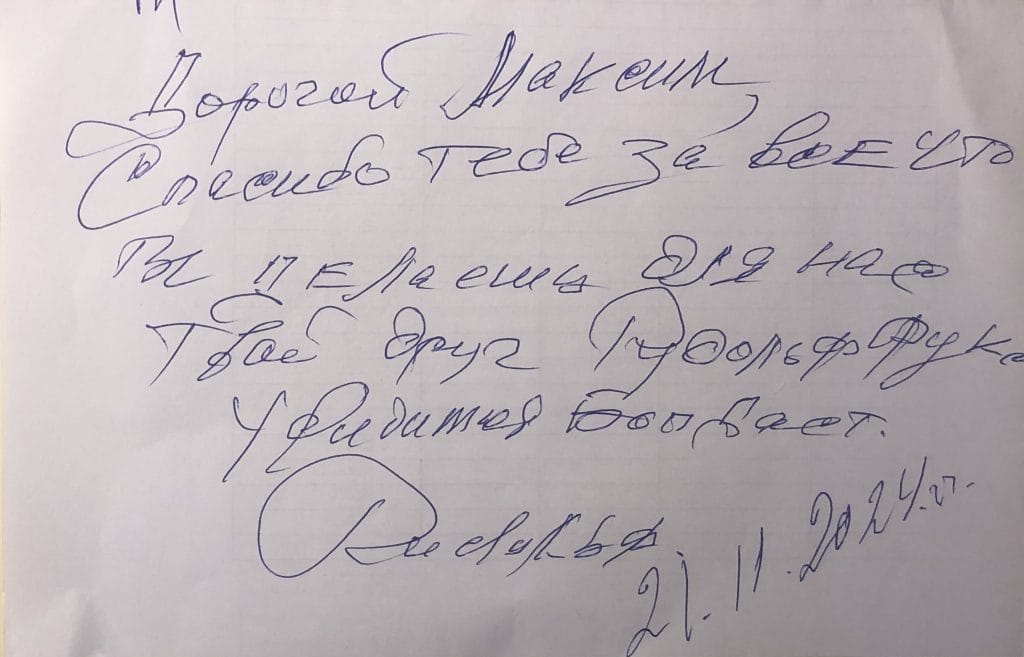 Дорогой Максим,
Спасибо тебе за все что
ты делаешь для нас
Твой друг Рудольф Фукс
21.11.2024 г.